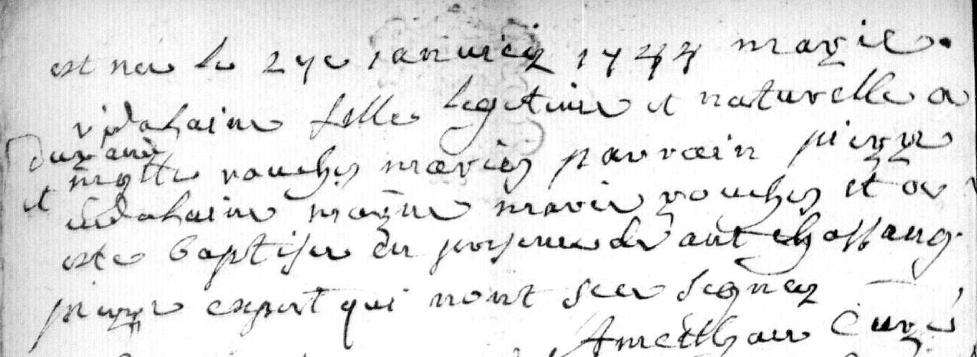 est nee le 27e janvier 1744 marie
vidalainc fille legitime et naturelle a
durand
et rouches mariez parrain pierre
vidalainc marie rouches et a
este baptisee en presence de ant chassang
pierre expert qui nont sceu signer
curé